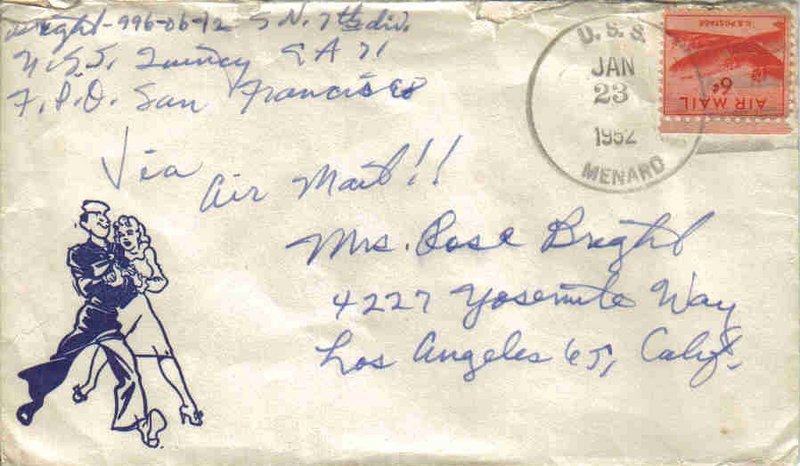 Wright-996-06-12 S.N. 7th div.
U.S.S. Quincy CA 71
F.P.O. San Francisco
Via Air Mail!!
Mrs. Rose Bright
4227 Yosemite Way
Los Angeles 65, Calif.
U.S.S.
JAN
23
1952
MENARD
U.S. POSTAGE
6¢
AIR MAIL